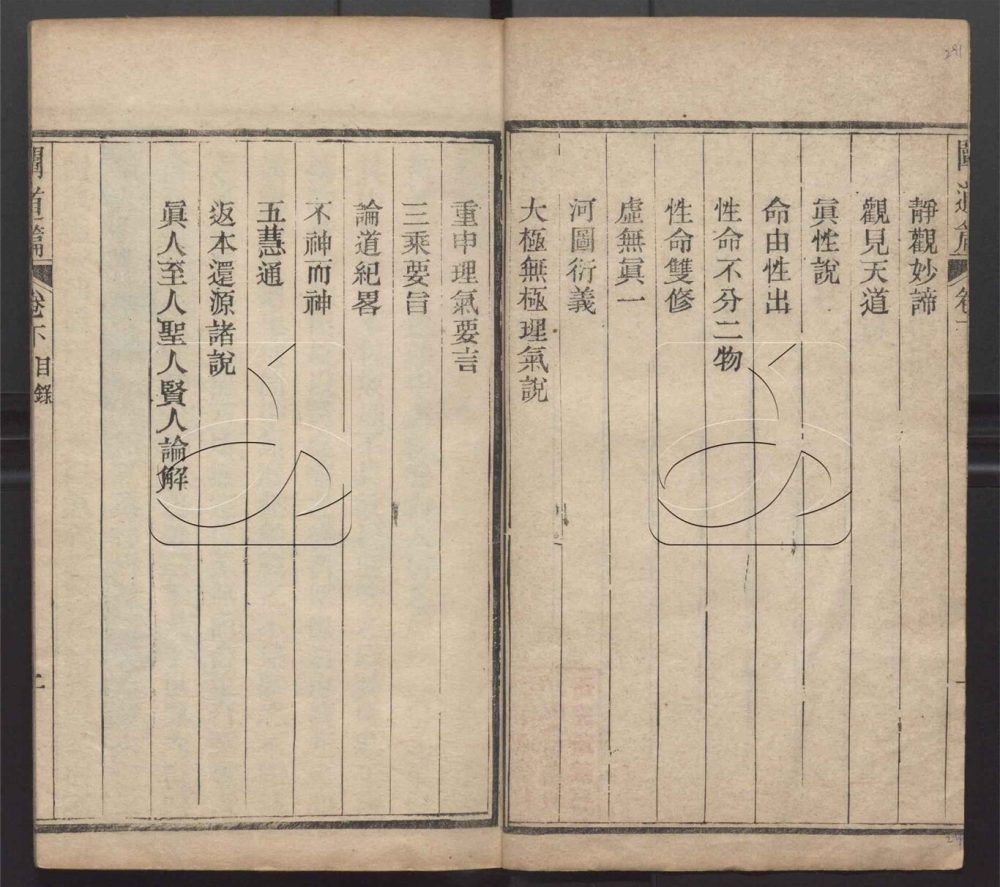 靜觀妙諦
觀見天道
眞性說
命由性出
性命不分二物
性命雙修
虛無眞一
河圖衍義
大極無極理氣說
重申理氣要言
三乘要旨
論道紀畧
不神而神
五慧通
返本還源諸說
眞人至人聖人賢人論解
道篇 卷下 目錄